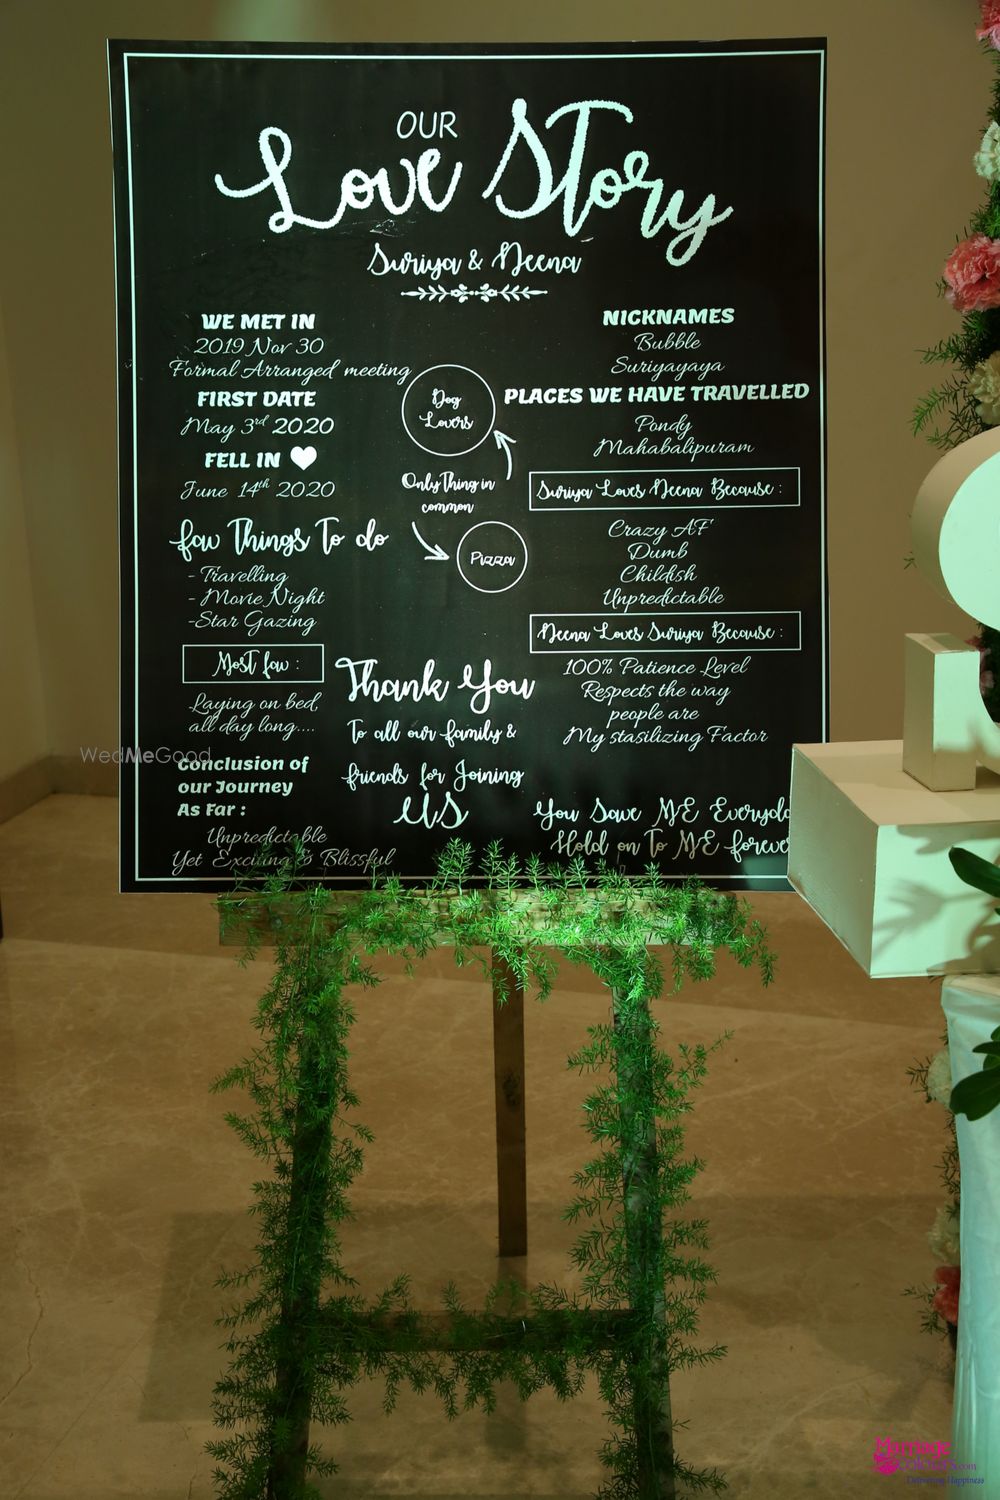 OUR
Love Story
Suriya & Neena
WE MET IN
2019 Nov 30
Formal Arranged meeting
FIRST DATE
May 3rd 2020
FELL IN
June 14th 2020
fav Things To do
- Travelling
- Movie Night
-Star Gazing
Most fav :
Laying on bed,
all day long....
Conclusion of
our Journey
As Far :
Unpredictable
Yet Exciting & Blissful
Dog
Lovers
Only Thing in
common
Pizza
Thank You
To all our family &
friends for Joining
US
NICKNAMES
Bubble
Suriyayaya
PLACES WE HAVE TRAVELLED
Pondy
Mahabalipuram
Suriya Loves Neena Because :
Crazy AF
Dumb
Childish
Unpredictable
Neena Loves Suriya Because :
100% Patience Level
Respects the way
people are
My stasilizing Factor
You Save ME Everyda
Hold on To ME forever
WedMeGood
Marriage
Colours.com
Delivering Happiness